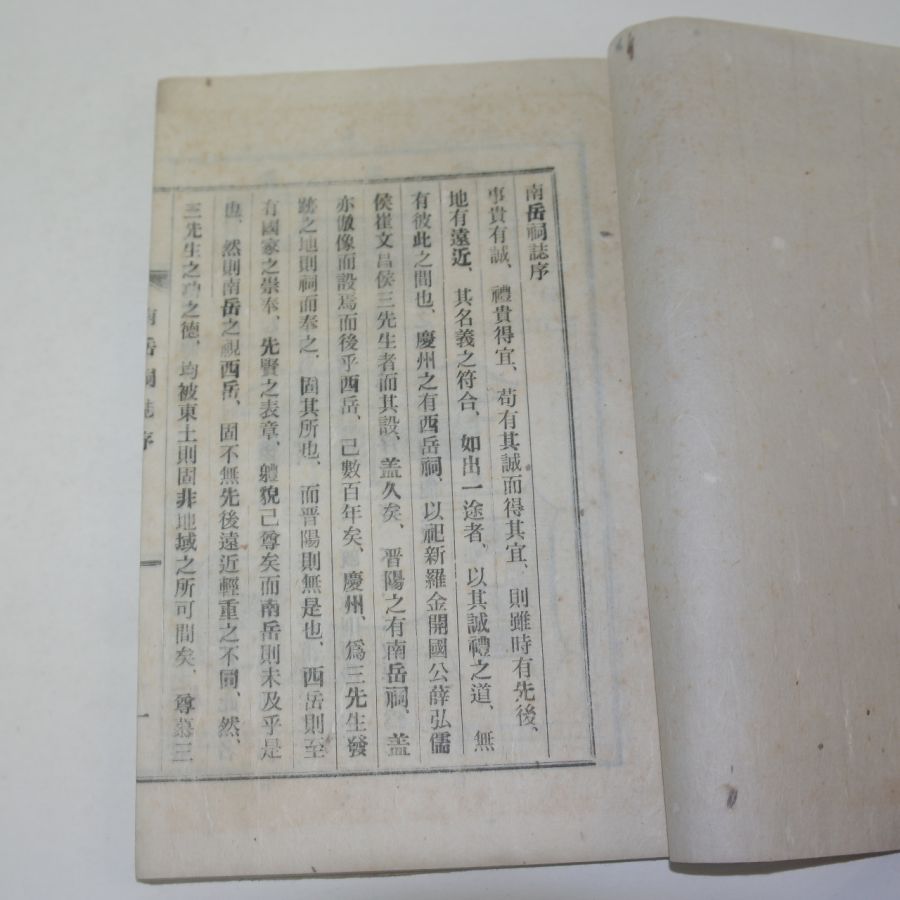 南岳祠誌序
事貴有誠、禮貴得宜、苟有其誠而得其宜、則雖時有先後、
地有遠近、其名義之符合、如出一途者、以其誠禮之道、無
有彼此之間也、慶州之有西岳祠、以祀新羅金開國公薛弘儒
侯崔文昌侯三先生者而其設、盖久矣、晋陽之有南岳祠、盖
亦倣像而設焉而後乎西岳、已數百年矣、慶州、爲三先生發
跡之地則祠而奉之、固其所也、而晋陽則無是也、西岳則至
有國家之崇奉、先賢之表章、軆貌己尊矣而南岳則未及乎是
也、然則南岳之視西岳、固不無先後遠近輕重之不同、然、
三先生之功之德、均被東土則固非地域之所可間矣、尊慕三
南岳祠誌序
一